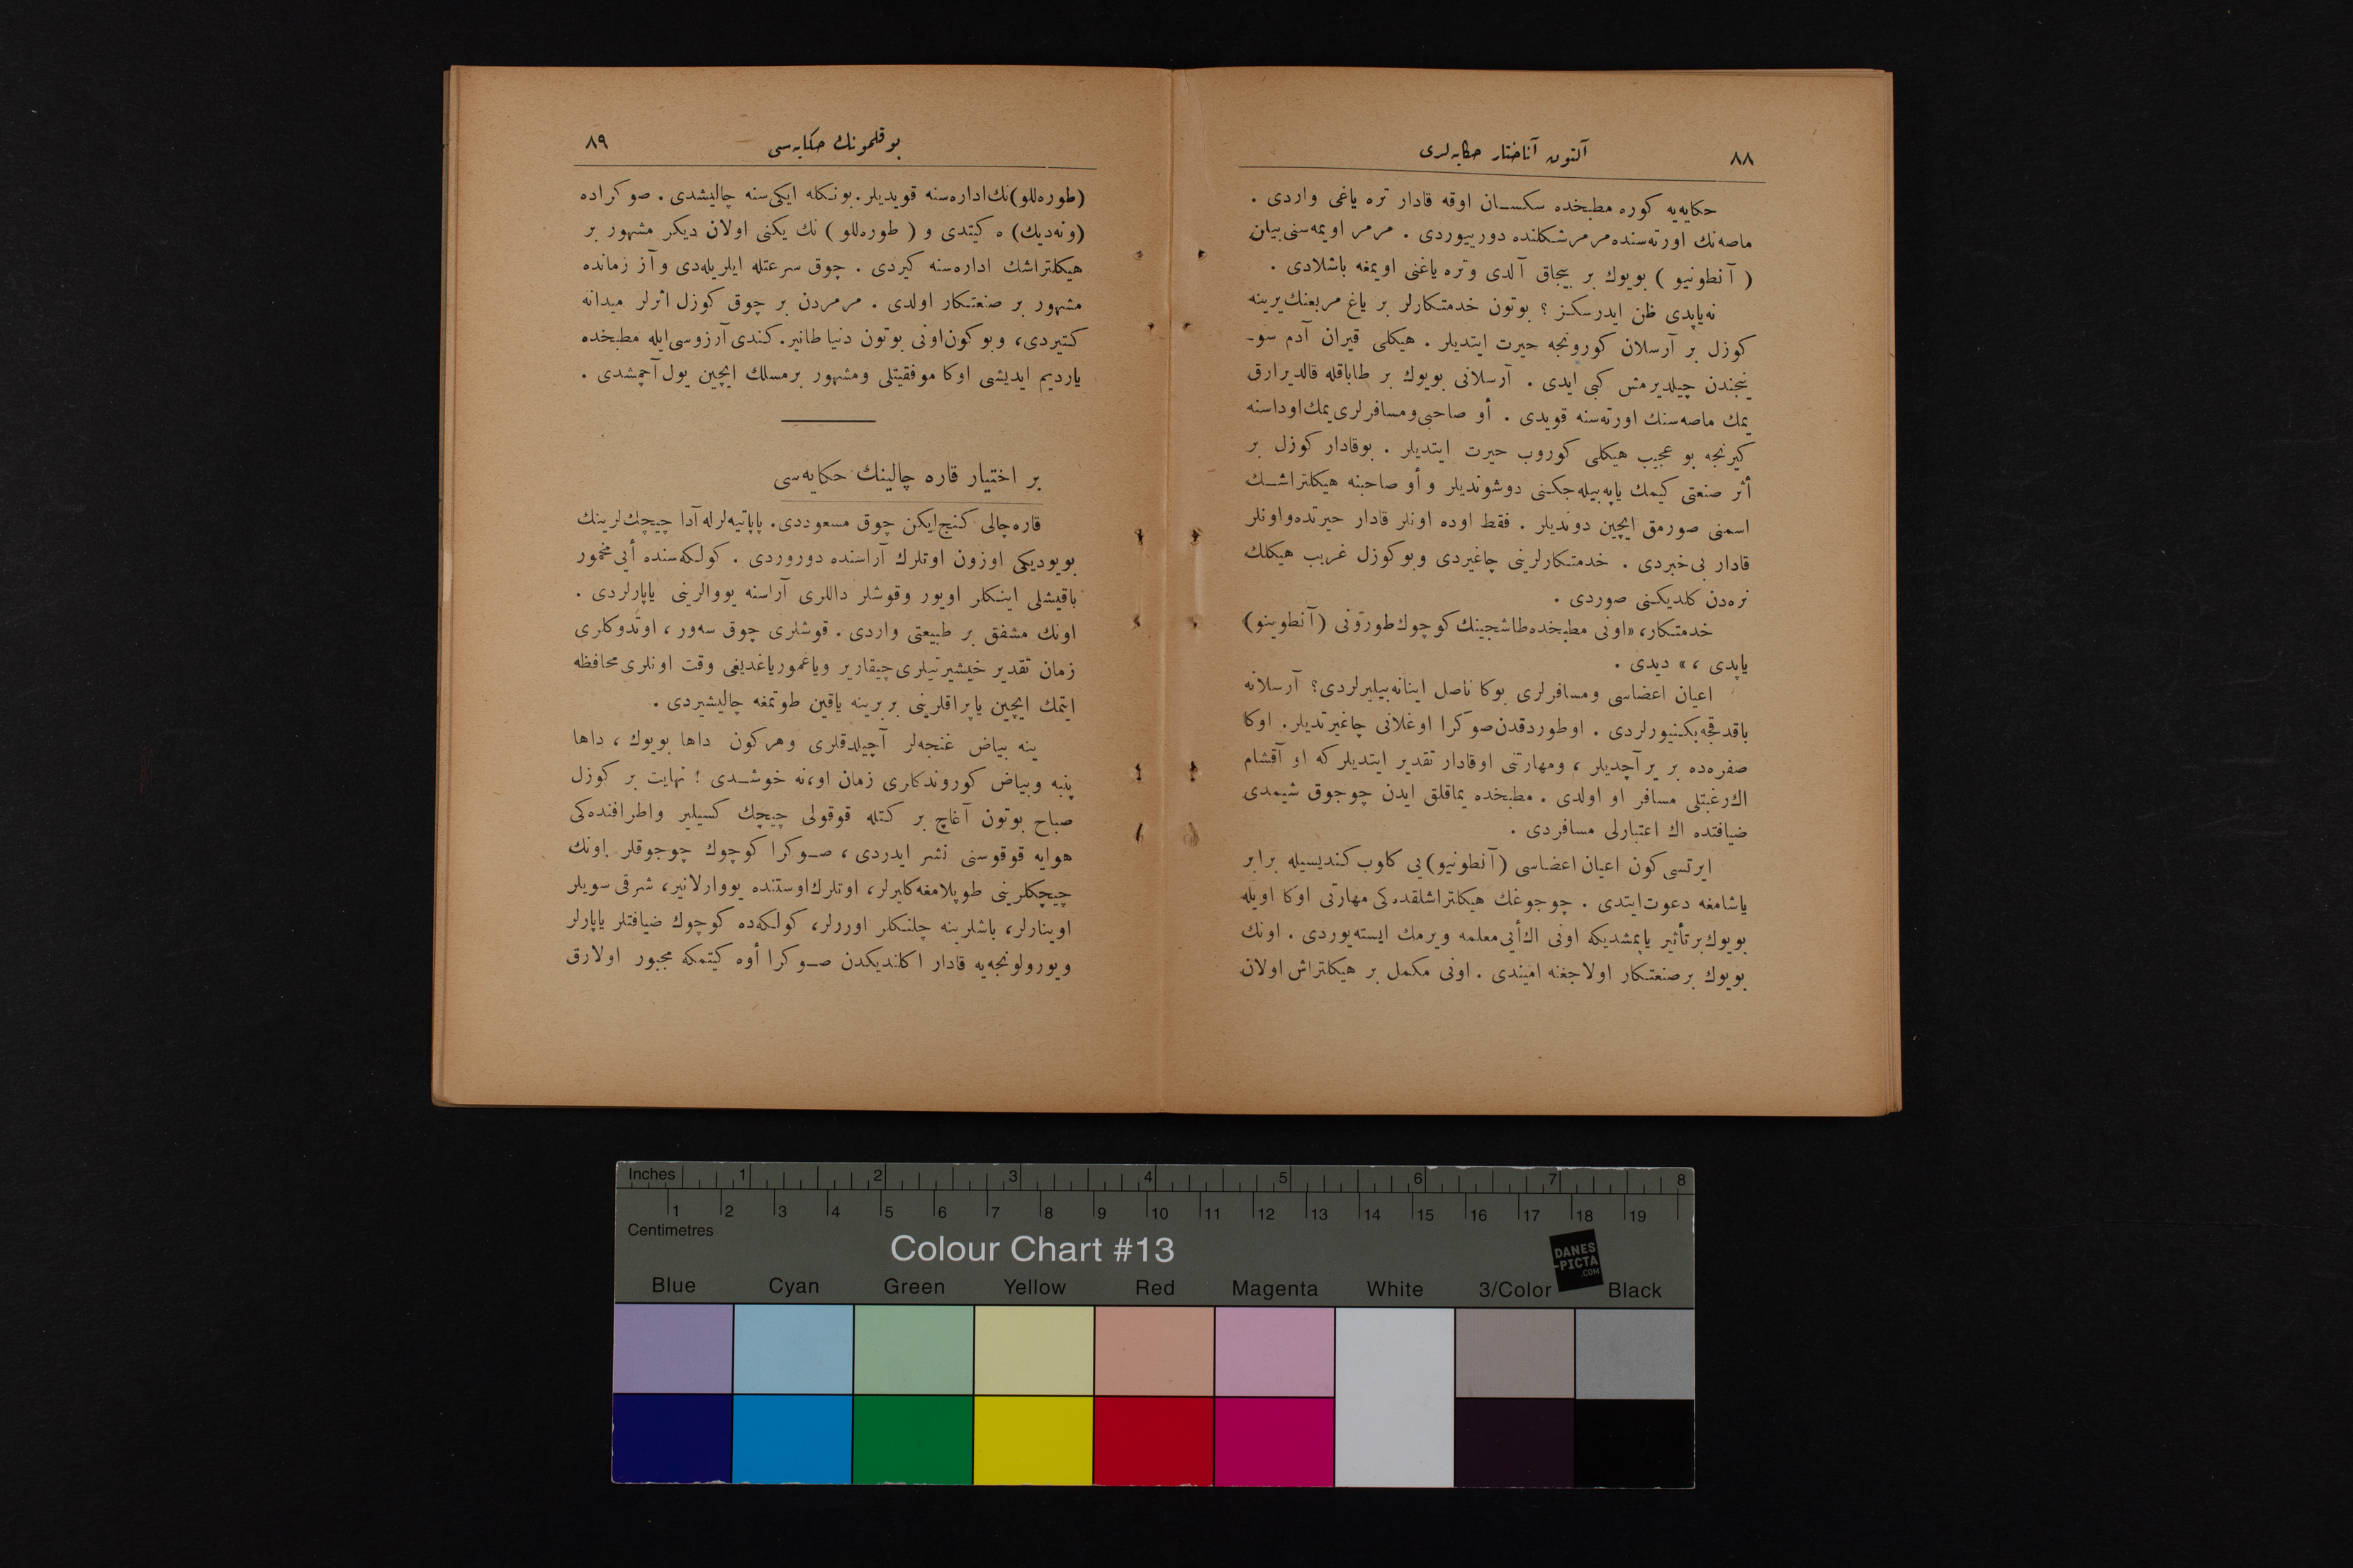 ٨٨
آلتون آناختار حكايه‌لری
حكايه‌يه كوره مطبخده سكسـان اوقه قادار تره ياغی واردی .
ماصه‌نك اورته‌سنده مرمر شكلنده دورييوردی . مرمر اويمه‌سنی بيلن
( آنطونيو ) بويوك بر بيچاق آلدی وتره ياغنی اويمغه باشلادی .
نه‌ياپدی ظن ايدرسكز ؟ بوتون خدمتكارلر بر ياغ مربعنك يرينه
كوزل بر آرسلان كورونجه حيرت ايتديلر . هيكلی قيران آدم سو-
ينجندن چيلديرمش كبی ايدی . آرسلانی بويوك بر طاباقله قالديرارق
يمك ماصه‌سنك اورته‌سنه قويدی . أو صاحبی ومسافرلری يمك اوداسنه
كيرنجه بو عجيب هيكلی كوروب حيرت ايتديلر . بوقادار كوزل بر
أثر صنعتی كيمك ياپه‌بيله‌جكنی دوشونديلر و أو صاحبنه هيكلتراشـك
اسمنی صورمق ايچين دونديلر . فقط اوده اونلر قادار حيرتده واونلر
قادار بی‌خبردی . خدمتكارلرينی چاغيردی وبو كوزل غريب هيكلك
نره‌دن كلديكنی صوردی .
خدمتكار، «اونی مطبخده طاشجينك كوچوك طورونی (آنطوينو)
ياپدی ،» ديدی .
اعيان اعضاسی ومسافرلری بوكا ناصل اينانه‌بيليرلردی؟ آرسلانه
باقدقجه بكنيورلردی . اوطوردقدن صوكرا اوغلانی چاغيرتديلر. اوكا
صفره‌ده بر ير آچديلر ، ومهارتنی اوقادار تقدير ايتديلر كه او آقشام
اك رغبتلی مسافر او اولدی . مطبخده يماقلق ايدن چوجوق شيمدی
ضيافتده اك اعتبارلی مسافردی .
ايرتسی كون اعيان اعضاسی (آنطونيو) يی كلوب كنديسيله برابر
ياشامغه دعوت ايتدی . چوجوغك هيكلتراشلقده‌كی مهارتی اوكا اويله
بويوك بر تأثير ياپمشديكه اونی اك أيی معلمه ويرمك ايسته‌يوردی . اونك
بويوك بر صنعتكار اولاجغنه اميندی . اونی مكمل بر هيكلتراش اولان
٨٩
بوقلمونك حكايه‌سی
(طوره‌للو)نك اداره‌سنه قويديلر. بونكله ايكی سنه چاليشدی . صوكراده
(ونه‌ديك) ه كيتدی و ( طوره‌للو ) نك يكنی اولان ديكر مشهور بر
هيكلتراشك اداره‌سنه كيردی . چوق سرعتله ايلريله‌دی و آز زمانده
مشهور بر صنعتكار اولدی . مرمردن بر چوق كوزل اثرلر ميدانه
كتيردی، وبوكون اونی بوتون دنيا طانير. كندی آرزوسی ايله مطبخده
يارديم ايديشی اوكا موفقيتلی ومشهور بر مسلك ايچين يول آچمشدی .
بر اختيار قاره چالينك حكايه‌سی
قاره چالی كنج ايكن چوق مسعوددی. پاپاتيه‌لرله آدا چيچك‌لرينك
بويوديكی اوزون اوتلرك آراسنده دوروردی . كولكه‌سنده أيی مخمور
باقيشلی اينكلر اويور وقوشلر داللری آراسنه يووالرينی ياپارلردی .
اونك مشفق بر طبيعتی واردی . قوشلری چوق سه‌ور ، اوتدوكلری
زمان تقدير خيشيرتيلری چيقارير وياغمور ياغديغی وقت اونلری محافظه
ايتمك ايچين ياپراقلرينی بربرينه ياقين طوتمغه چاليشيردی .
ينه بياض غنجه‌لر آچيلدقلری وهركون داها بويوك ، داها
پنبه وبياض كوروندكلری زمان او،نه خوشـدی ! نهايت بر كوزل
صباح بوتون آغاچ بر كتله قوقولی چيچك كسيلير واطرافنده‌كی
هوايه قوقوسنی نشر ايدردی ، صـوكرا كوچوك چوجوقلر اونك
چيچكلرينی طوپلامغه كليرلر، اوتلرك اوستنده يووارلانير، شرقی سويلر
اوينارلر، باشلرينه چلنكلر اوررلر، كولكه‌ده كوچوك ضيافتلر ياپارلر
ويورولونجه‌يه قادار اكلنديكدن صـوكرا أوه كيتمكه مجبور اولارق
Inches 1 2 3 4 5 6 7 8
1 2 3 4 5 6 7 8 9 10 11 12 13 14 15 16 17 18 19
Centimetres
Colour Chart #13
DANES
-PICTA
.COM
Blue Cyan Green Yellow Red Magenta White 3/Color Black